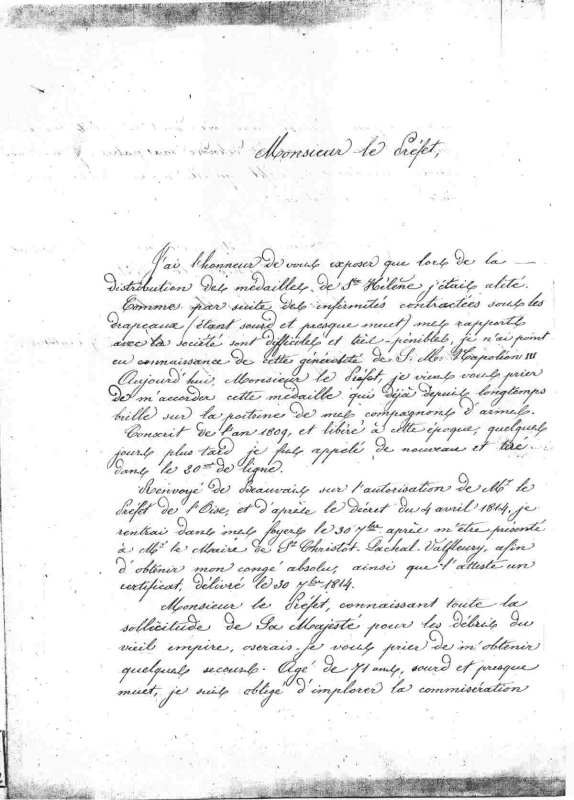 Monsieur le Préfet,
J'ai l'honneur de vous exposer que lors de la —
distribution des médailles de Ste Hélène j'étais alité.
Comme par suite des infirmités contractées sous les
drapeaux (étant sourd et presque muet) mes rapports
avec la société sont difficiles et très-pénibles, je n'ai point
eu connaissance de cette générosité de S. M. Napoléon III
Aujourd'hui, Monsieur le Préfet, je viens vous prier
de m'accorder cette médaille qui déjà depuis longtemps
brille sur la poitrine de mes compagnons d'armes.
Conscrit de l'an 1809, et libéré à cette époque, quelques
jours plus tard je fus appelé de nouveau et
dans le 30me de ligne.
Renvoyé de Beauvais sur l'autorisation de Mr le
Préfet de l'Oise, et d'après le décret du 4 avril 1814, je
rentrai dans mes foyers le 30 7bre après m'être présenté
à Mr le Maire de St Christôt-Lachal-Valfleury, afin
d'obtenir mon congé absolu, ainsi que l'atteste un
certificat, délivré le 30 7bre 1814.
Monsieur le Préfet, connaissant toute la
sollicitude de Sa Majesté pour les débris du
vieil empire, oserais-je vous prier de m'obtenir
quelques secours. Agé de 71 ans, sourd et presque
muet, je suis obligé d'implorer la commisération